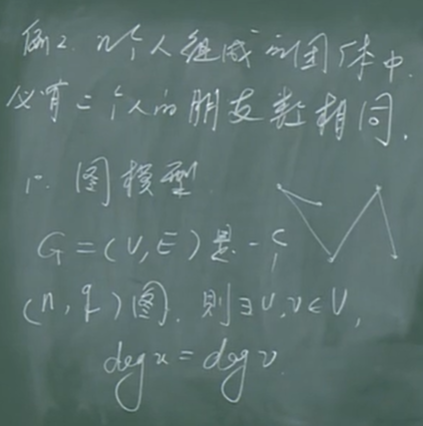 例2. n个人组成的团体中,
必有二个人的朋友数相同.
1°. 图模型
G=(V,E)是一个
(n,q)图. 则∃u,v∈V,
deg u = deg v.